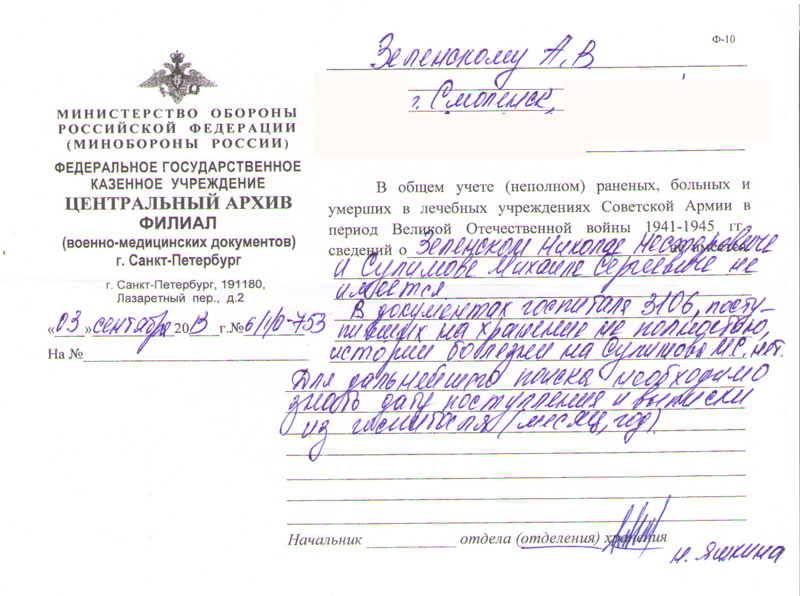 Ф-10
Зеленскому А.В.
г. Смоленск,
МИНИСТЕРСТВО ОБОРОНЫ
РОССИЙСКОЙ ФЕДЕРАЦИИ
(МИНОБОРОНЫ РОССИИ)
ФЕДЕРАЛЬНОЕ ГОСУДАРСТВЕННОЕ
КАЗЕННОЕ УЧРЕЖДЕНИЕ
ЦЕНТРАЛЬНЫЙ АРХИВ
ФИЛИАЛ
(военно-медицинских документов)
г. Санкт-Петербург
г. Санкт-Петербург, 191180,
Лазаретный пер., д.2
«03»сентября 2013 г.№6/1/0-753
На №
В общем учете (неполном) раненых, больных и
умерших в лечебных учреждениях Советской Армии в
период Великой Отечественной войны 1941-1945 гг.
сведений о Зеленском Николае не имеется
и Сулимове Михаиле Сергеевиче не
имеется
В документах госпиталя 3106, посту-
пивших на хранение не полностью,
истории болезни на Сулимова М.С. нет.
Для дальнейшего поиска необходимо
знать дату поступления и выписки
из госпиталя (месяц, год).
Начальник отдела (отделения) хранения
Н. Яшкина